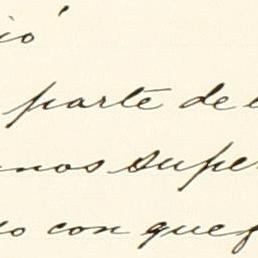 ió
parte de
nos supe
o con que